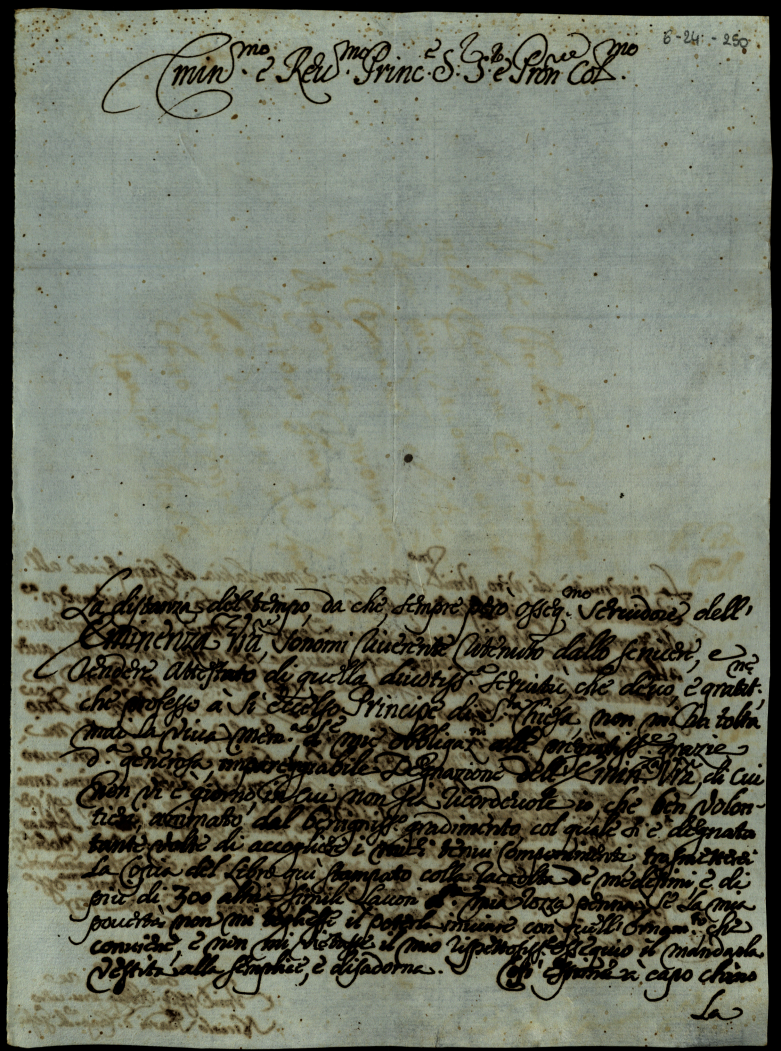 6-24-250
Emin.mo e Reu.mo Princ.e S.r S.r e Pron.e Col.mo
La distanza del tempo, da che sempre osseq.mo seruidore dell'
Eminenza Vrã, sonomi riuerente ritenuto dallo scriuere, e
rendere attestato di quella diuotiss.a seruitù, che deuo, e gratit.ne
che professo à si eccelso Principe di S.ta Chiesa non mi ha tolta
mai la viua mem.a mie obbligaz.ni alle grazie
d.a generosa impareggiabile Degnazione dell'Emin.a Vrã, di cui
non vi è giorno, in cui non sia ricordeuole io che ben volon-
tieri, animato dal benigniss.o gradimento, col quale si è degnata
tante volte di accogliere i miei tenui componimenti trasmetterei
La Copia del Libro quì stampato colla raccolta de' medesimi, e di
più di 300 altri simili Lauori d.a mia rozza penna, se la mia
pouertà non mi togliesse il poterla inuiare con quelli Ornam.ti, che
conuiene, e non mi vietasse il mio rispettosiss.o ossequio il mandarla
vestita alla semplice, e disadorna. à capo chino
La